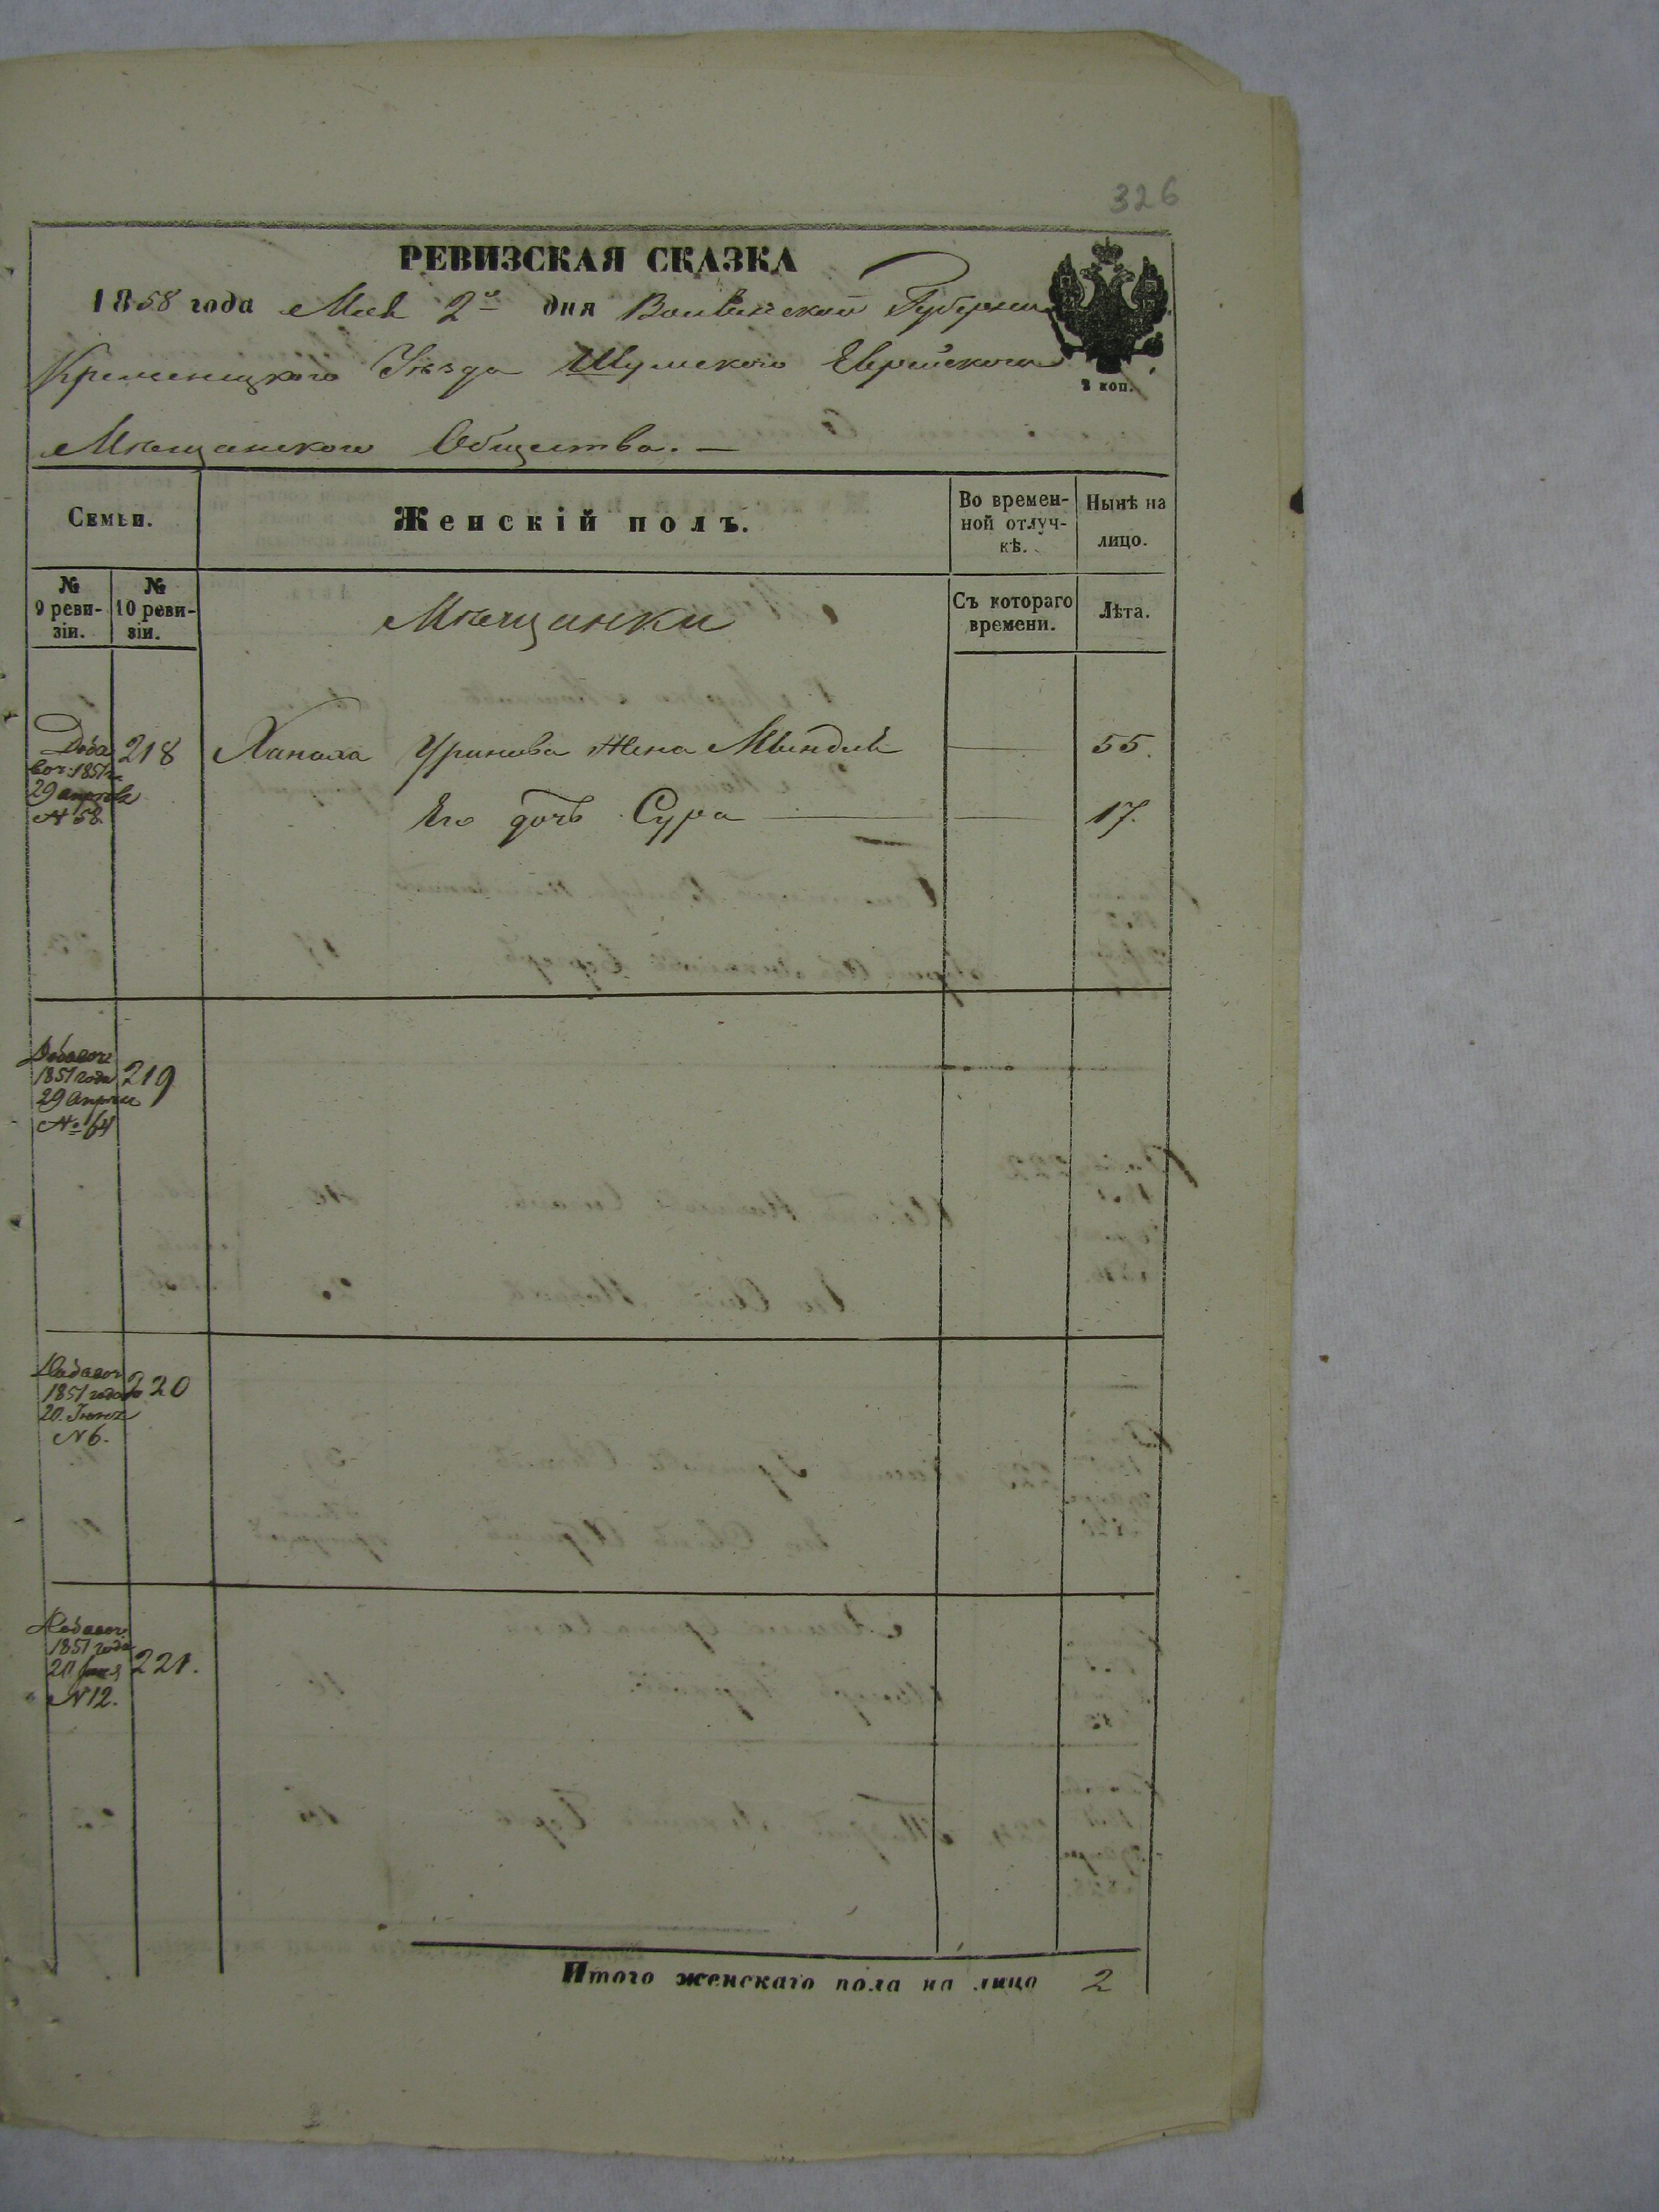 326
РЕВИЗСКАЯ СКАЗКА
1858 года Мая 2го дня Волынской Губернии
Кременецкого Уѣзда Шумского Еврейского
2 коп.
Мѣщанского Общества. —
Семьи.
Женскій полъ.
Во времен-
ной отлуч-
кѣ.
Нынѣ на
лицо.
№
9 реви-
зіи.
№
10 реви-
зіи.
Мѣщанки
Съ котораго
времени.
Лѣта.
Доба
воч: 1851 г.
29 апрѣля
№ 58.
218
Уринова жена Миндля
55.
Его дочь Сура
17.
Добавоч
1851 года
29 Апрѣля
№ 64
219
Добавоч
1851 года
20. Іюня
№ 6.
220
Добавоч
1851 года
20 Іюня
№ 12.
221.
Итого женскаго пола на лицо 2